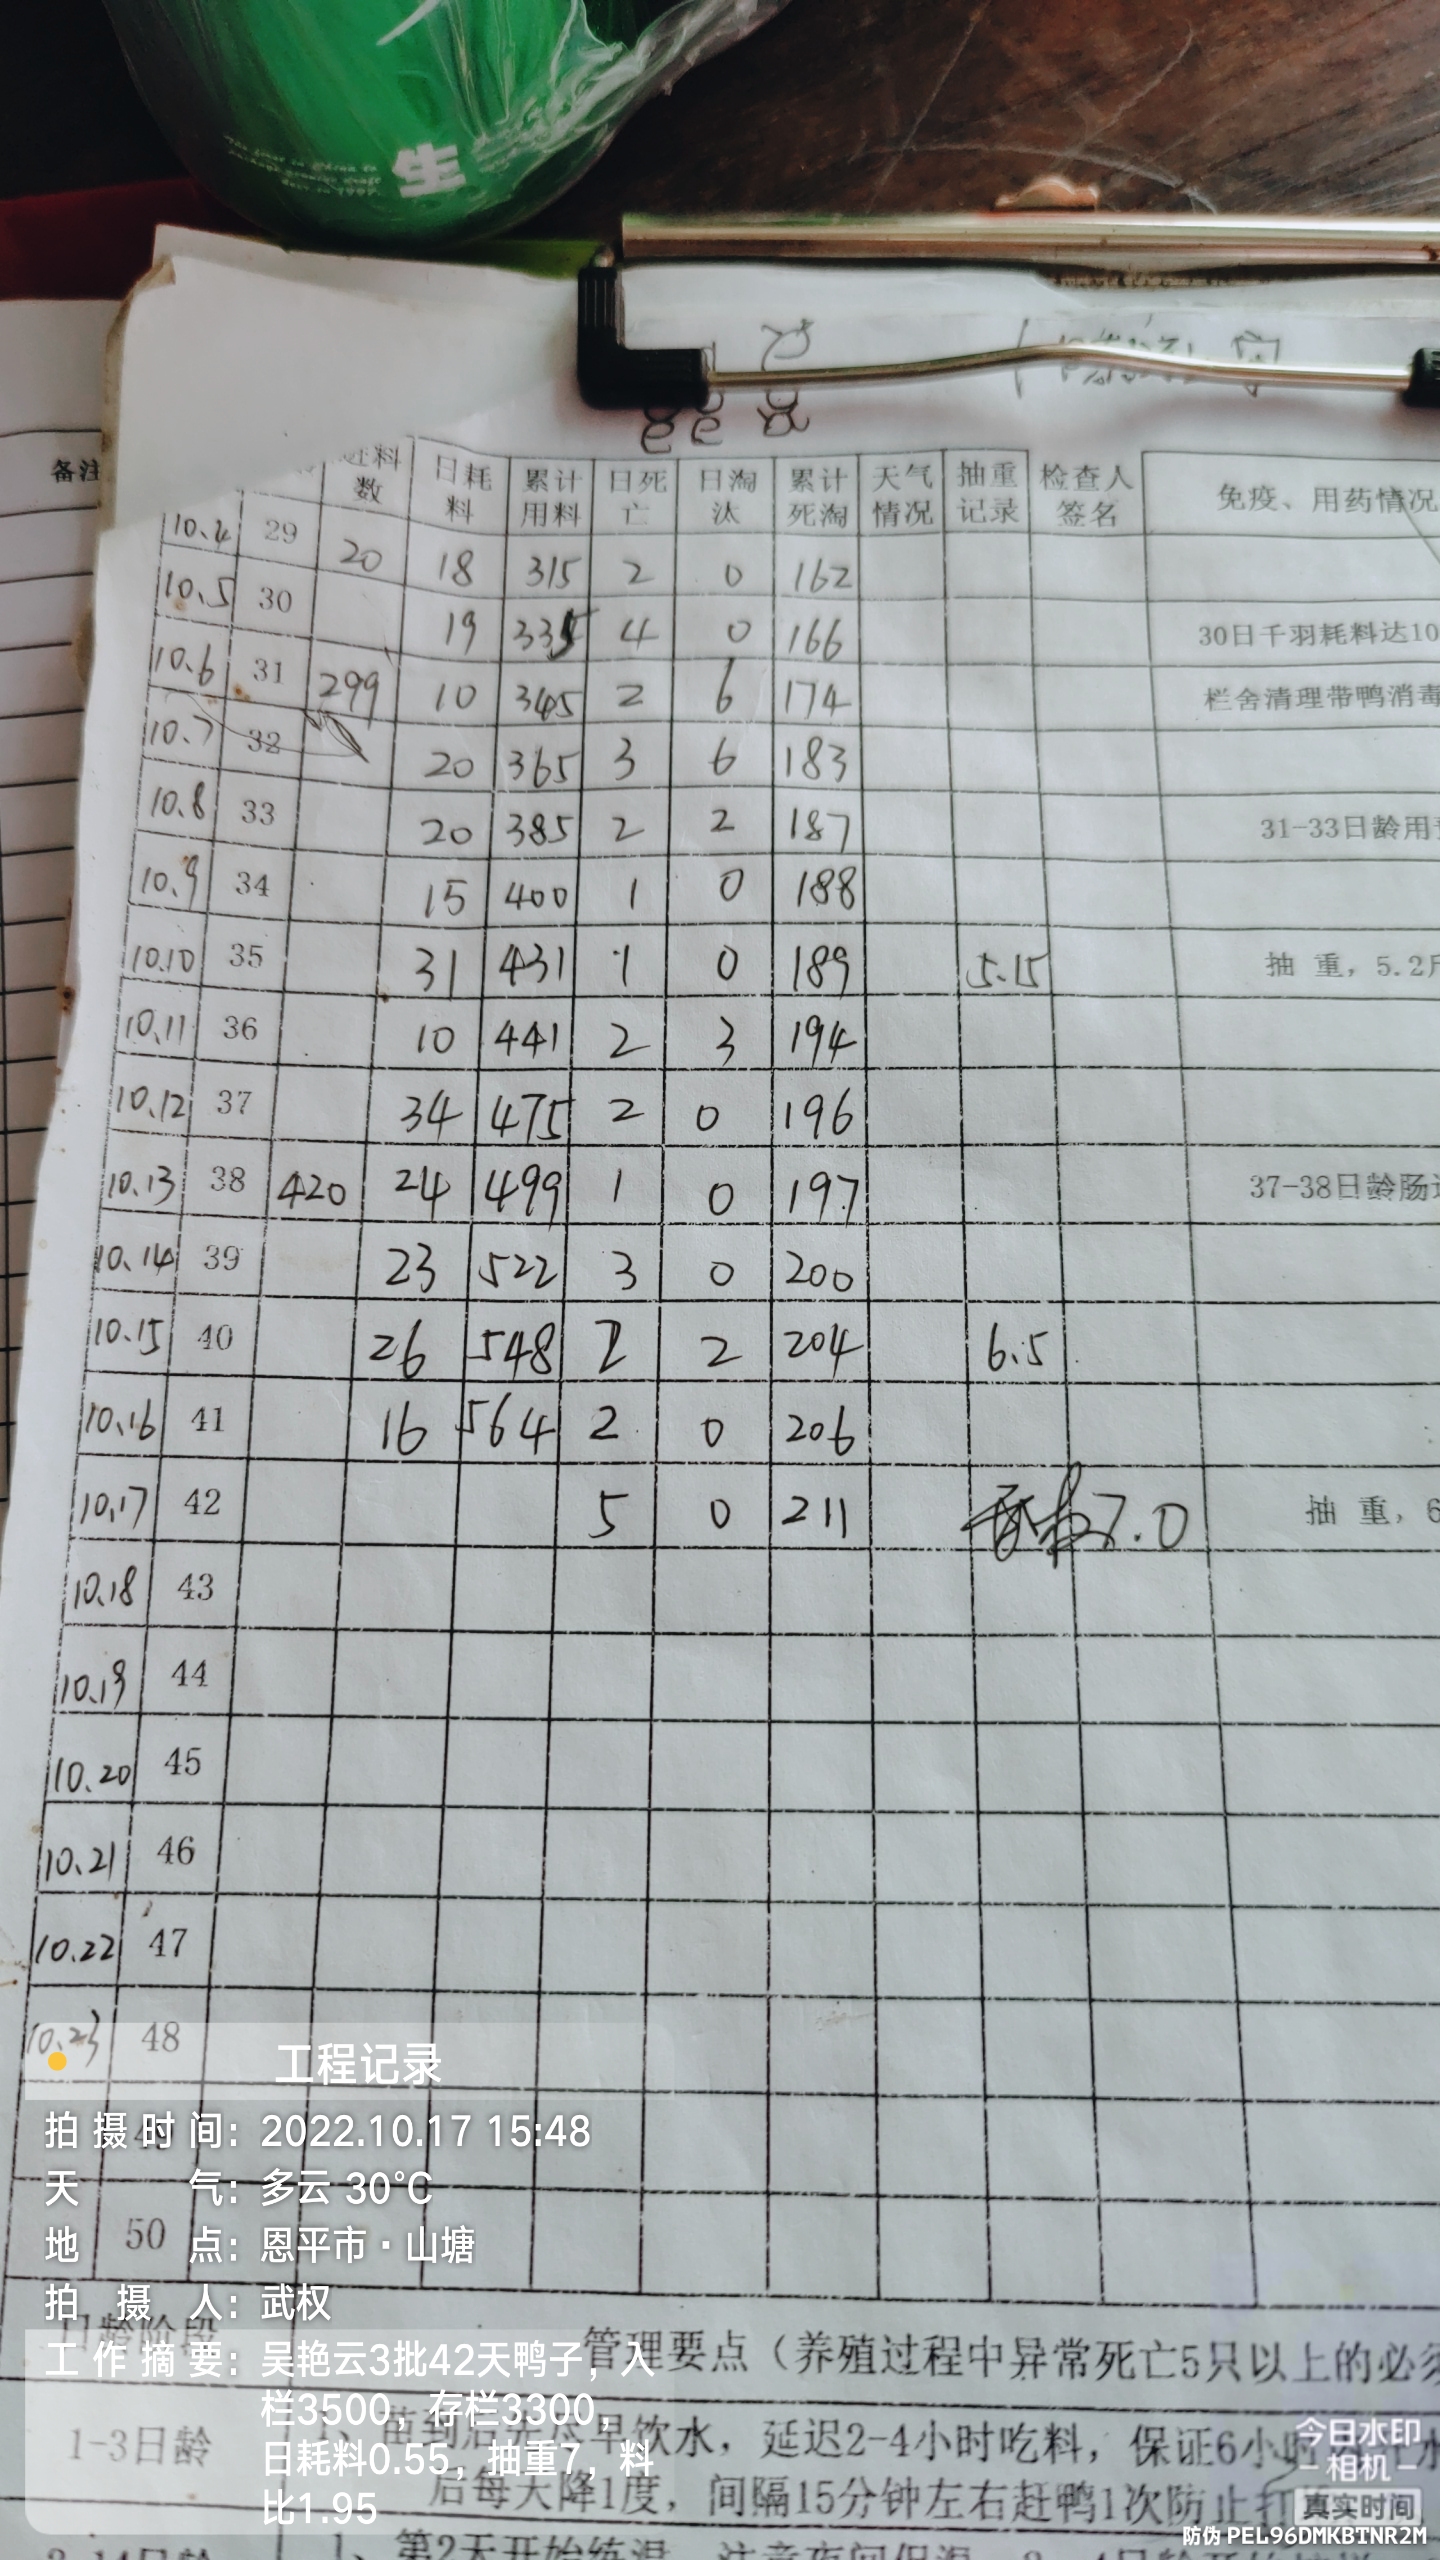 生
备注
进料数 日耗料 累计用料 日死亡 日淘汰 累计死淘 天气情况 抽重记录 检查人签名 免疫、用药情况
10.4 29 20 18 315 2 0 162
10.5 30 19 335 4 0 166 30日千羽耗料达10
10.6 31 299 10 345 2 6 174 栏舍清理带鸭消毒
10.7 32 20 365 3 6 183
10.8 33 20 385 2 2 187 31-33日龄用
10.9 34 15 400 1 0 188
10.10 35 31 431 1 0 189 5.15 抽 重，5.2斤
10.11 36 10 441 2 3 194
10.12 37 34 475 2 0 196
10.13 38 420 24 499 1 0 197 37-38日龄肠
10.14 39 23 522 3 0 200
10.15 40 26 548 2 2 204 6.5
10.16 41 16 564 2 0 206
10.17 42 5 0 211 7.0 抽 重，6
10.18 43
10.19 44
10.20 45
10.21 46
10.22 47
10.23 48
工程记录
拍摄时间：2022.10.17 15:48
天气：多云 30℃
50
地点：恩平市·山塘
拍摄人：武权
日龄阶段 管理要点（养殖过程中异常死亡5只以上的必须
工作摘要：吴艳云3批42天鸭子，入
栏3500，存栏3300，
日耗料0.55，抽重7，料
比1.95
1-3日龄 早饮水，延迟2-4小时吃料，保证6小时
后每天降1度，间隔15分钟左右赶鸭1次防止打
1、第2天开始练湿
今日水印
相机
真实时间
防伪 PEL96DMKBTNR2M